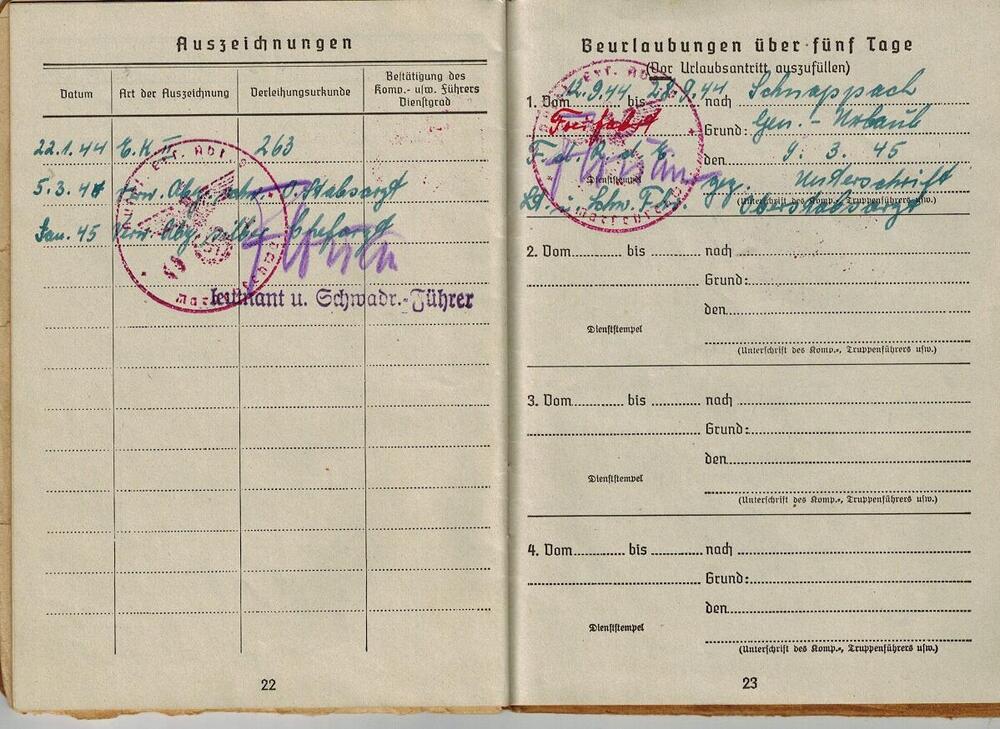 Auszeichnungen
Datum
Art der Auszeichnung
Verleihungsurkunde
Bestätigung des
Komp.- usw. Führers
Dienstgrad
22.1.44 E.K. II 263
5.3.44 Verw. Abz. schw. O. Stabsarzt
Jan. 45 Verw. Abz. silber Chefarzt
Leutnant u. Schwadr.-Führer
22
Beurlaubungen über fünf Tage
(Vor Urlaubsantritt auszufüllen)
1. Vom 12.9.44 bis 28.9.44 nach Schnappach
Grund: Gen.-Urlaub
F. d. R. d. A. den 9. 3. 45
Dienststempel
gez. Unterschrift
(Unterschrift des Komp.-, Truppenführers usw.)
Lt. u. Schw. Fhr. Oberstabsarzt
2. Vom bis nach
Grund:
den
Dienststempel
(Unterschrift des Komp.-, Truppenführers usw.)
3. Vom bis nach
Grund:
den
Dienststempel
(Unterschrift des Komp.-, Truppenführers usw.)
4. Vom bis nach
Grund:
den
Dienststempel
(Unterschrift des Komp.-, Truppenführers usw.)
23